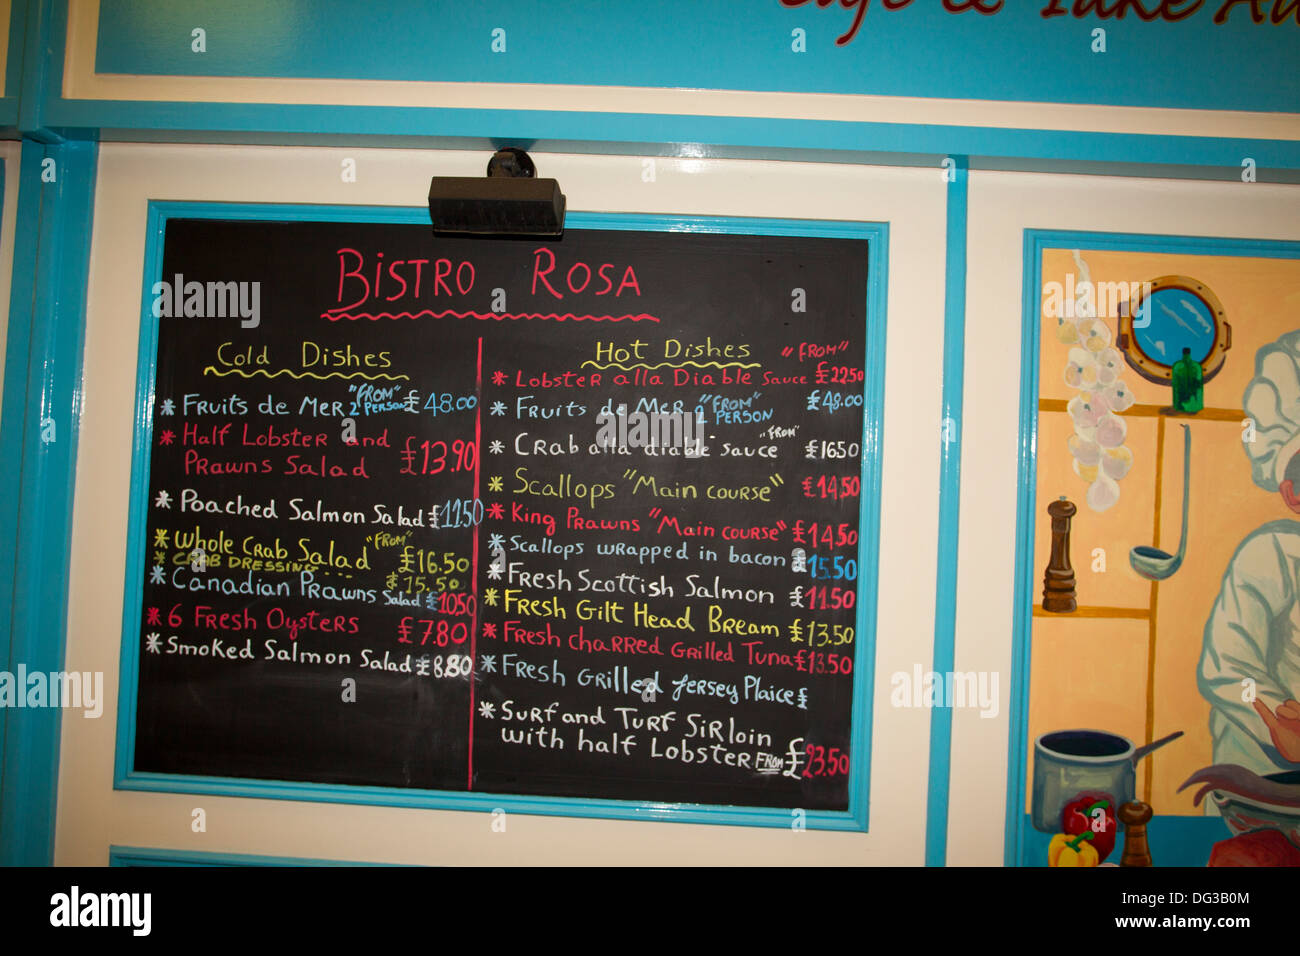 Café & Take Aw
BISTRO ROSA
Cold Dishes
* FRUITS de MER "FROM" 2 PERSON £48.00
* Half Lobster and
PRAWNS Salad £13.90
* Poached Salmon Salad £11.50
* Whole CRAB Salad "FROM" £16.50
* CRAB DRESSING.... £15.50
* Canadian PRAWNS Salad £10.50
* 6 FRESH OYSTERS £7.80
* Smoked Salmon Salad £8.80
Hot Dishes
"FROM"
* LOBSTER alla Diable sauce £22.50
* FRUITS de MER "FROM" 2 PERSON £48.00
* CRAB alla diable sauce "FROM" £16.50
* Scallops "Main course" £14.50
* King PRAWNS "Main course" £14.50
* Scallops wrapped in bacon £15.50
* FRESH Scottish Salmon £11.50
* FRESH GILT HEAD BREAM £13.50
* FRESH CHARRED GRILLED TUNA £13.50
* FRESH GRILLED JERSEY PLAICE £
* SURF and TURF SIRLOIN
with half LOBSTER FROM £23.50
alamy
alamy stock photo
Image ID: DG3B0M
www.alamy.com